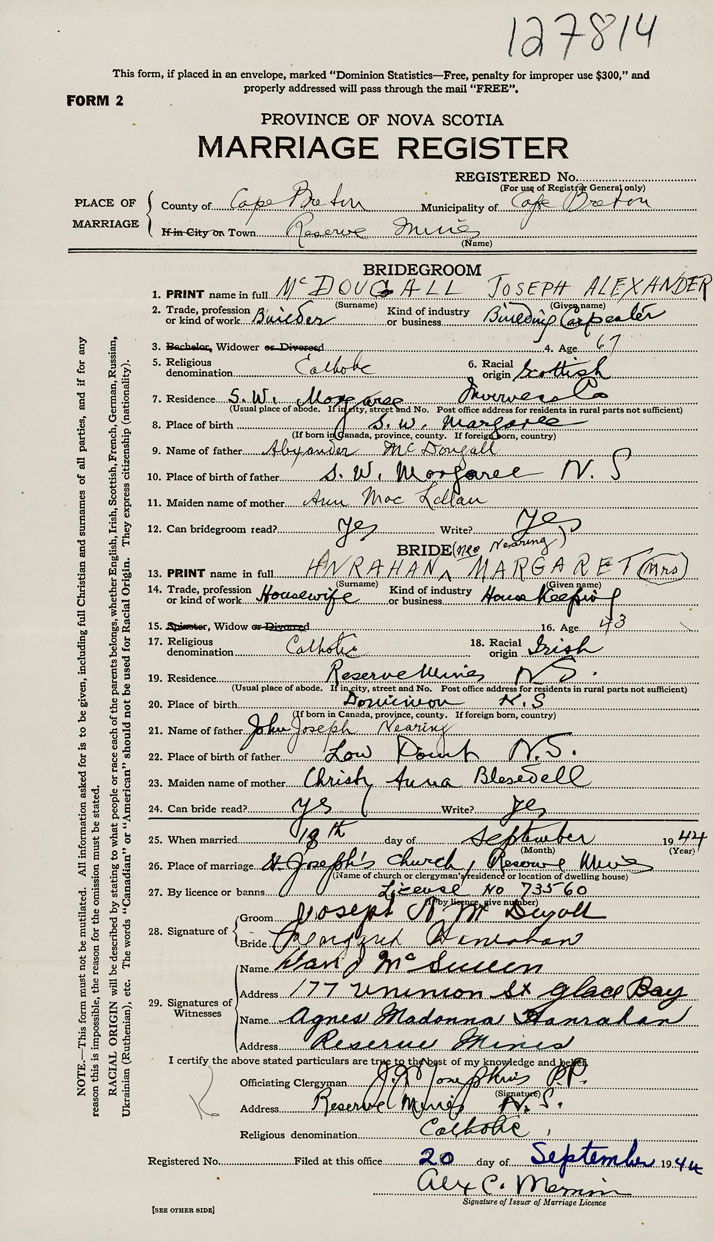 127814
This form, if placed in an envelope, marked “Dominion Statistics—Free, penalty for improper use $300,” and
properly addressed will pass through the mail “FREE”.
FORM 2
PROVINCE OF NOVA SCOTIA
MARRIAGE REGISTER
REGISTERED No.
(For use of Registrar General only)
PLACE OF MARRIAGE
County of Cape Breton Municipality of Cape Breton
If in City or Town Reserve Mines
(Name)
BRIDEGROOM
1. PRINT name in full McDOUGALL JOSEPH ALEXANDER
(Surname) (Given name)
2. Trade, profession or kind of work Builder Kind of industry or business Building Carpenter
3. Bachelor, Widower or Divorced 4. Age 67
5. Religious denomination Catholic 6. Racial origin Scottish
7. Residence S. W. Margaree Inverness Co
(Usual place of abode. If in city, street and No. Post office address for residents in rural parts not sufficient)
8. Place of birth S. W. Margaree
(If born in Canada, province, county. If foreign born, country)
9. Name of father Alexander McDougall
10. Place of birth of father S. W. Margaree N. S
11. Maiden name of mother Ann Mac Lellan
12. Can bridegroom read? yes Write? yes
BRIDE (nee Nearing)
13. PRINT name in full HANRAHAN MARGARET (Mrs)
(Surname) (Given name)
14. Trade, profession or kind of work Housewife Kind of industry or business House Keeping
15. Spinster, Widow or Divorced 16. Age 43
17. Religious denomination Catholic 18. Racial origin Irish
19. Residence Reserve Mines N S.
(Usual place of abode. If in city, street and No. Post office address for residents in rural parts not sufficient)
20. Place of birth Dominion N. S
(If born in Canada, province, county. If foreign born, country)
21. Name of father John Joseph Nearing
22. Place of birth of father Low Point N.S.
23. Maiden name of mother Christy Anna Blesedell
24. Can bride read? yes Write? yes
25. When married 18th day of September 1944
(Month) (Year)
26. Place of marriage St. Joseph's Church, Reserve Mines
(Name of church or clergyman's residence or location of dwelling house)
27. By licence or banns License No 73560
(If by licence, give number)
28. Signature of Groom Joseph A Mc
Bride Margaret Hanrahan
29. Signatures of Witnesses
Name Dan J McSween
Address 177 St Glace Bay
Name Agnes Madonna Hanrahan
Address Reserve Mines
I certify the above stated particulars are true to the best of my knowledge and belief.
Officiating Clergyman P.P.
(Signature)
Address Reserve Mines N. S.
Religious denomination Catholic
Registered No. Filed at this office 20 day of September 1944
Alex C.
Signature of Issuer of Marriage Licence
[SEE OTHER SIDE]
NOTE.—This form must not be mutilated. All information asked for is to be given, including full Christian and surnames of all parties, and if for any
reason this is impossible, the reason for the omission must be stated.
RACIAL ORIGIN will be described by stating to what people or race each of the parents belongs, whether English, Irish, Scottish, French, German, Russian,
Ukrainian (Ruthenian), etc. The words “Canadian” or “American” should not be used for Racial Origin. They express citizenship (nationality).